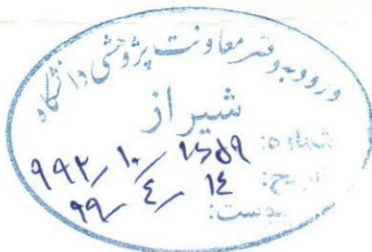 ورود به دفتر معاونت پژوهشی دانشگاه
شیراز
شماره:
۹۹۲/۱۰/۱۶۵۹
۹۹/۴/۱۴